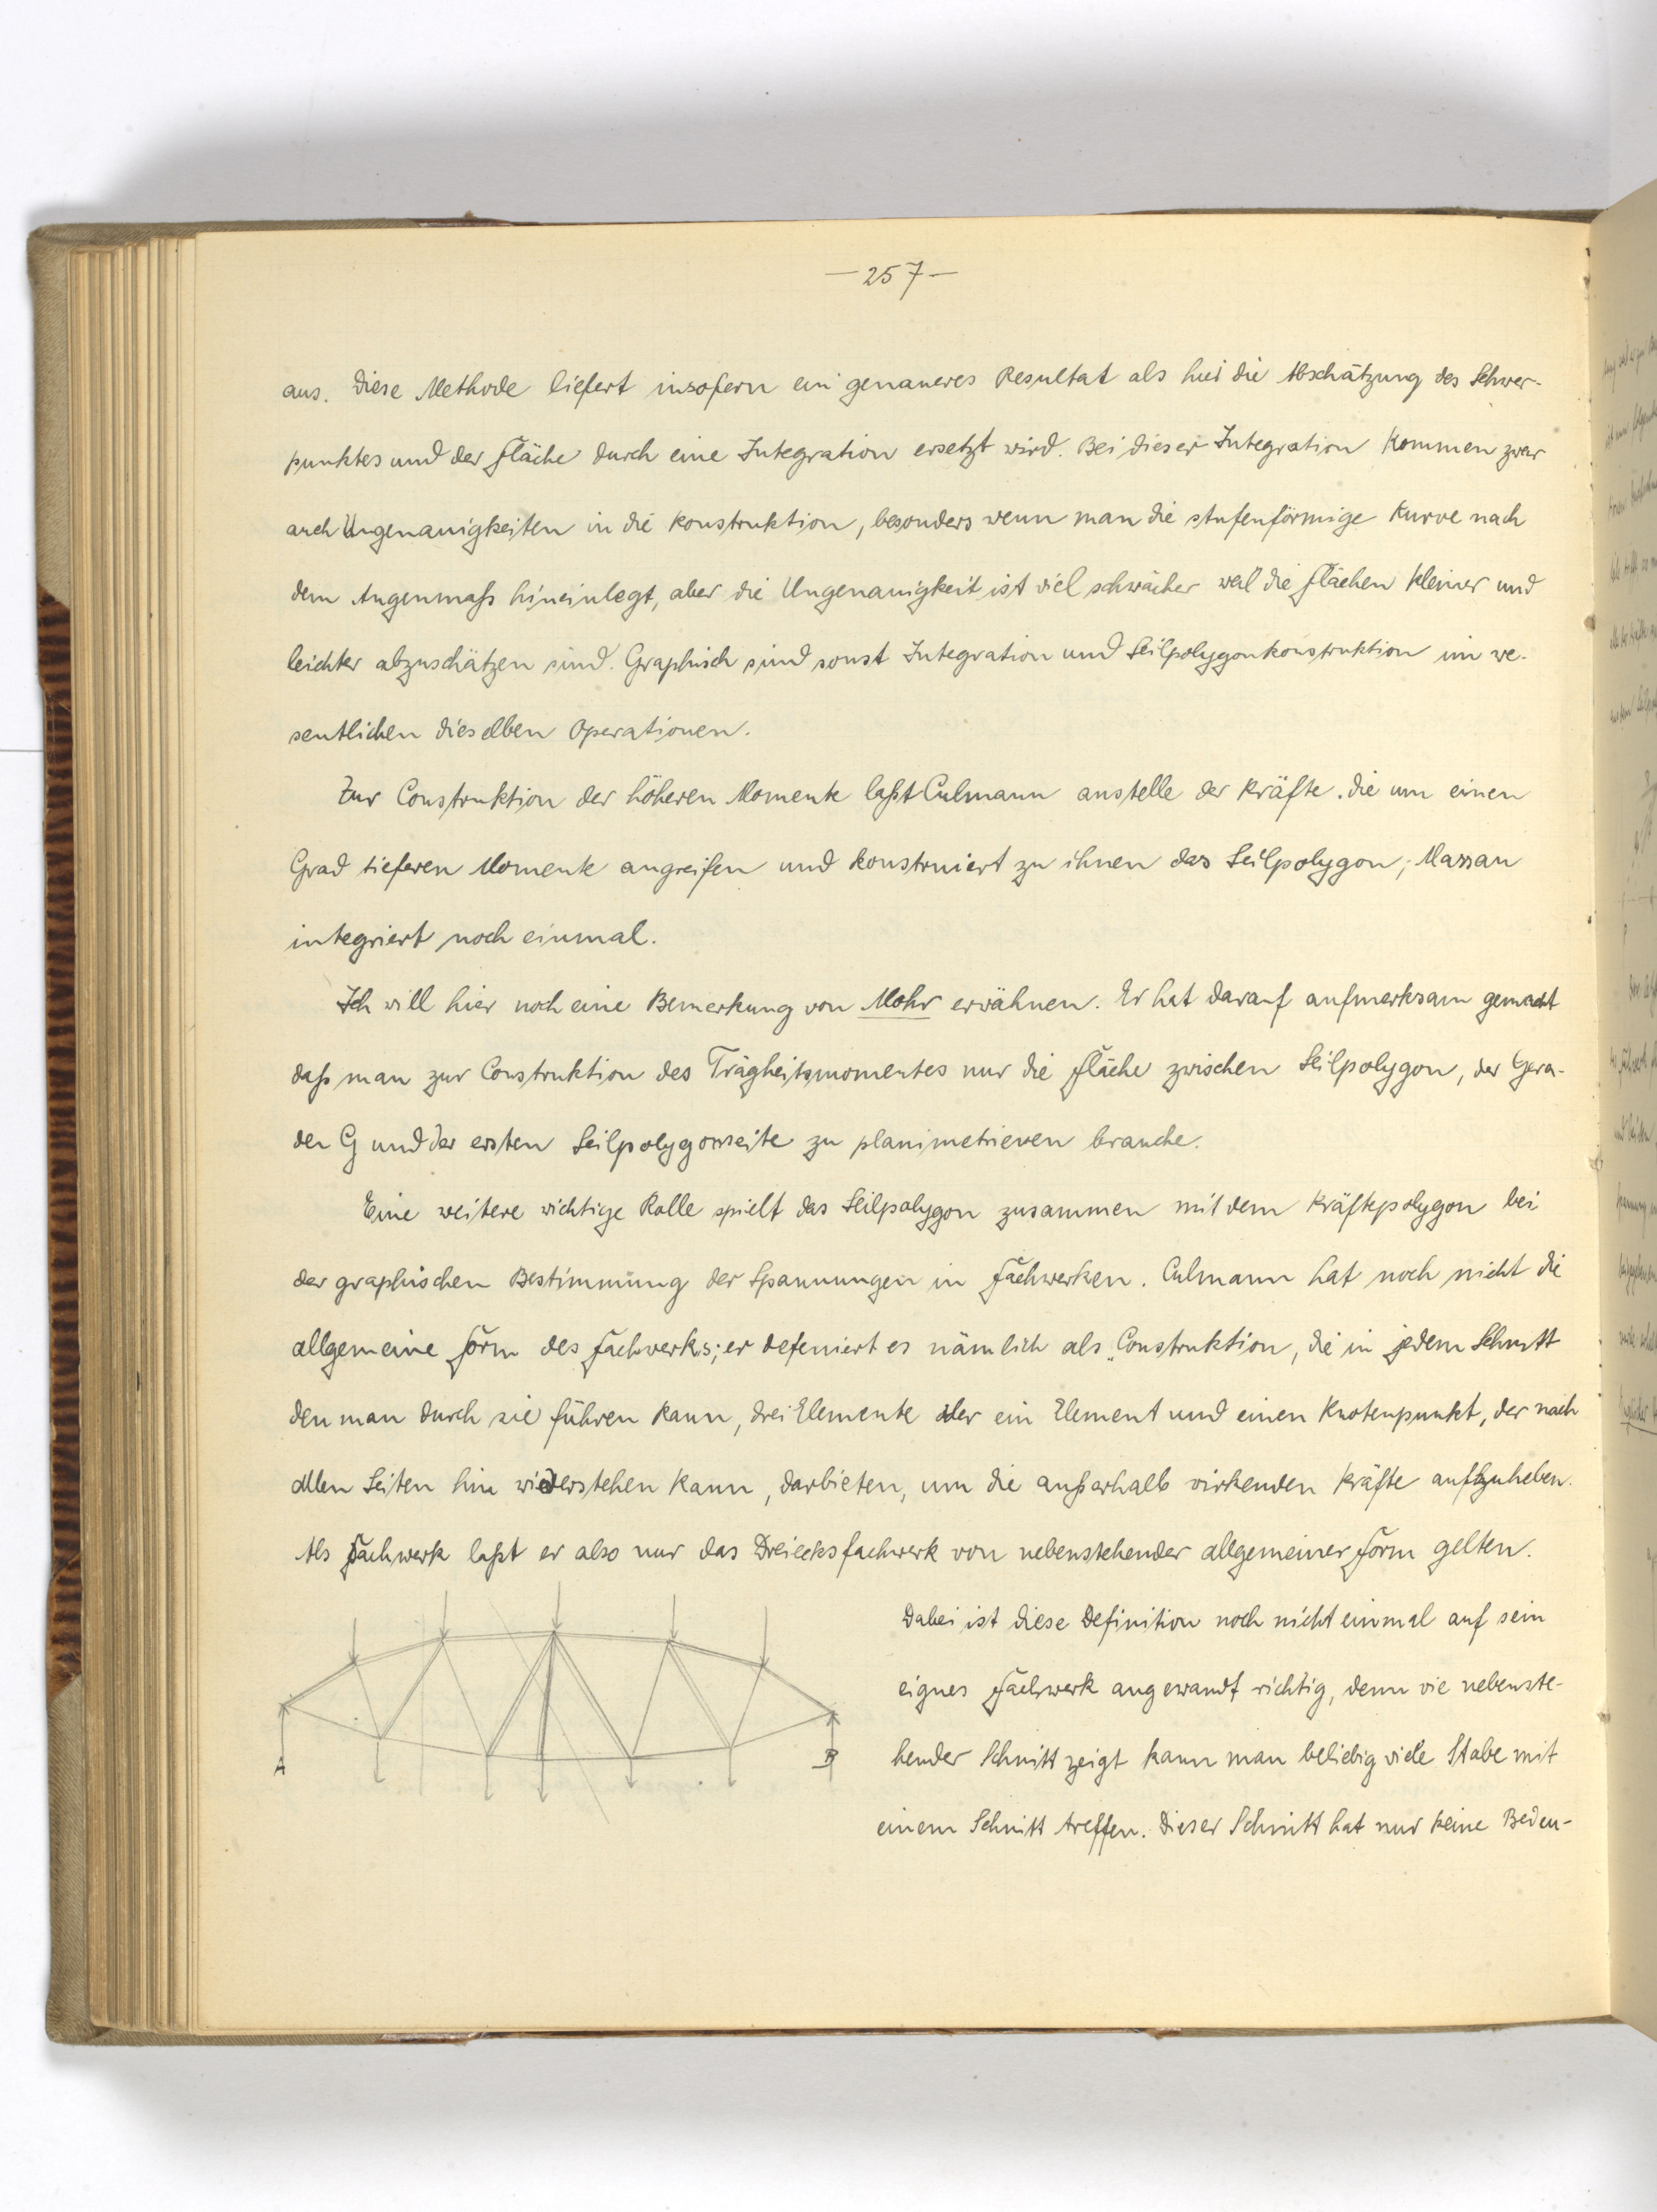 — 257 —
aus. Diese Methode liefert insofern ein genaueres Resultat als hier die Abschätzung des Schwer-
punktes und der Fläche durch eine Integration ersetzt wird. Bei dieser Integration kommen zwar
auch Ungenauigkeiten in die Konstruktion, besonders wenn man die stufenförmige Kurve nach
dem Augenmaß hineinlegt, aber die Ungenauigkeit ist viel schwächer weil die Flächen kleiner und
leichter abzuschätzen sind. Graphisch sind sonst Integration und Seilpolygonkonstruktion im we-
sentlichen dieselben Operationen.
Zur Construktion der höheren Momente laßt Culmann anstelle der Kräfte die um einen
Grad tieferen Momente angreifen und konstruiert zu ihnen das Seilpolygon; Massau
integriert noch einmal.
Ich will hier noch eine Bemerkung von Mohr erwähnen. Er hat darauf aufmerksam gemacht
daß man zur Construktion des Trägheitsmomentes nur die Fläche zwischen Seilpolygon, der Gera-
den G und der ersten Seilpolygonseite zu planimetrieren brauche.
Eine weitere wichtige Rolle spielt das Seilpolygon zusammen mit dem Kräftepolygon bei
der graphischen Bestimmung der Spannungen in Fachwerken. Culmann hat noch nicht die
allgemeine Form des Fachwerks; er defeniert es nämlich als „Construktion, die in jedem Schnitt
den man durch sie führen kann, drei Elemente oder ein Element und einen Knotenpunkt, der nach
allen Seiten hin wiederstehen kann, darbieten, um die außerhalb wirkenden Kräfte aufzuheben.
Als Fachwerk laßt er also nur das Dreiecksfachwerk von nebenstehender allgemeiner Form gelten.
Dabei ist diese Definition noch nicht einmal auf sein
eignes Fachwerk angewandt richtig, denn wie nebenste-
hender Schnitt zeigt kann man beliebig viele Stabe mit
einem Schnitt treffen. Dieser Schnitt hat nur keine Bedeu-
A
B